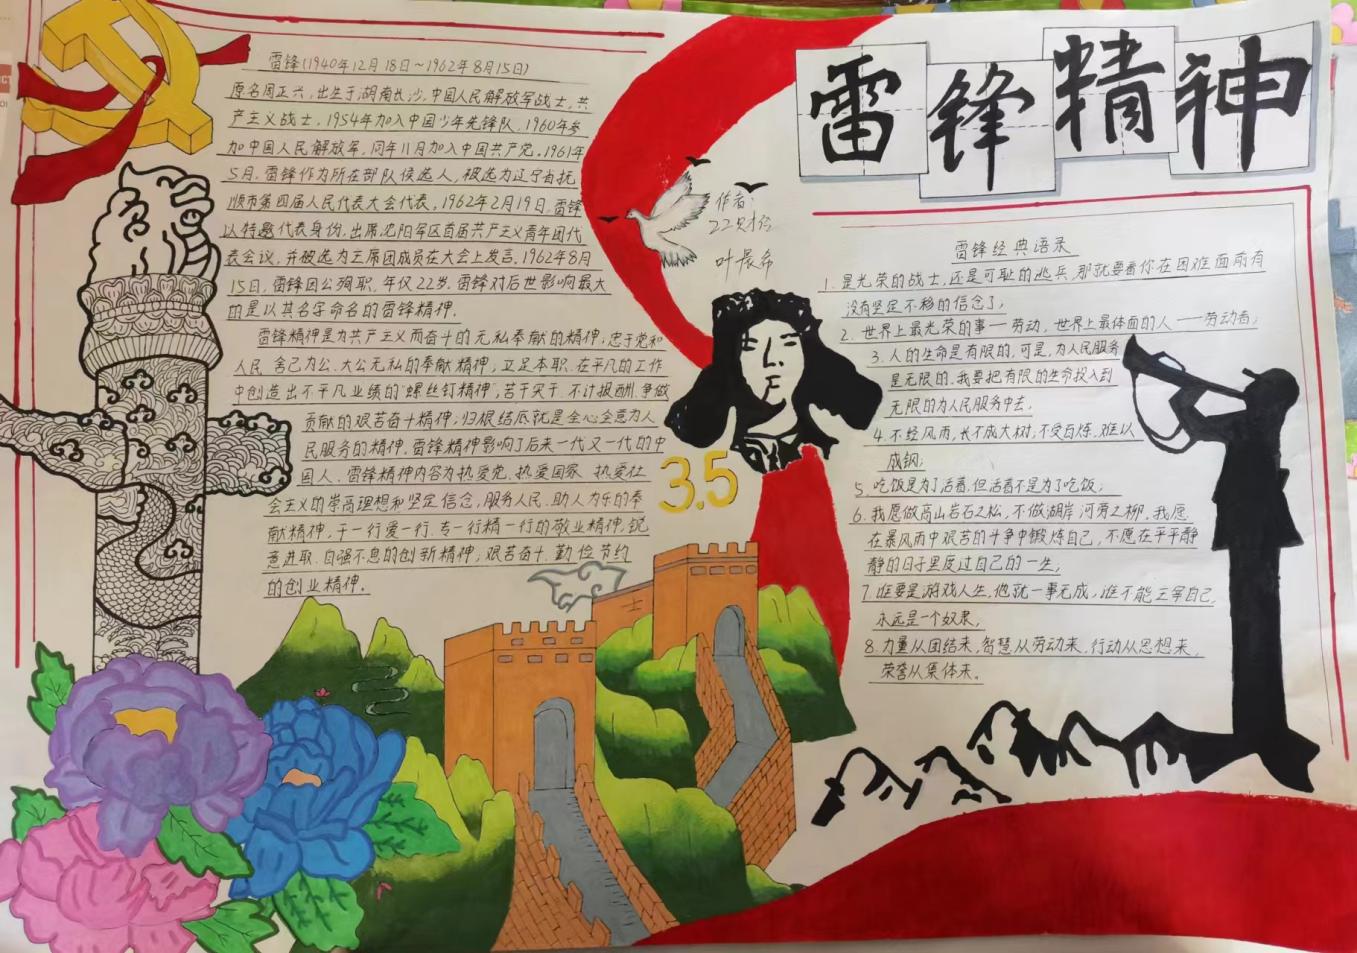 雷锋精神
雷锋(1940年12月18日~1962年8月15日)
原名周正兴,出生于湖南长沙,中国人民解放军战士,共
产主义战士。1954年加入中国少年先锋队,1960年参
加中国人民解放军,同年11月加入中国共产党。1961年
5月,雷锋作为所在部队候选人,被选为辽宁省抚
顺市第四届人民代表大会代表,1962年2月19日,雷锋
以特邀代表身份,出席沈阳军区首届共产主义青年团代
表会议,并被选为主席团成员在大会上发言,1962年8月
15日,雷锋因公殉职,年仅22岁。雷锋对后世影响最大
的是以其名字命名的雷锋精神。
雷锋精神是为共产主义而奋斗的无私奉献的精神;忠于党和
人民 舍己为公、大公无私的奉献精神;立足本职、在平凡的工作
中创造出不平凡业绩的“螺丝钉精神”;苦干实干、不计报酬、争做
贡献的艰苦奋斗精神;归根结底就是全心全意为人
民服务的精神。雷锋精神影响了后来一代又一代的中
国人、雷锋精神内容为热爱党、热爱国家、热爱社
会主义的崇高理想和坚定信念,服务人民、助人为乐的奉
献精神,干一行爱一行、专一行精一行的敬业精神,锐
意进取、自强不息的创新精神,艰苦奋斗、勤俭节约
的创业精神。
作者:
22财
叶晨希
3.5
雷锋经典语录
1.是光荣的战士,还是可耻的逃兵,那就要看你在困难面前有
没有坚定不移的信念了;
2.世界上最光荣的事——劳动,世界上最体面的人——劳动者;
3.人的生命是有限的,可是,为人民服务
是无限的,我要把有限的生命投入到
无限的为人民服务中去;
4.不经风雨,长不成大树,不受百炼,难以
成钢;
5.吃饭是为了活着,但活着不是为了吃饭;
6.我愿做高山岩石之松,不做湖岸河旁之柳。我愿
在暴风雨中艰苦的斗争中锻炼自己,不愿在平平静
静的日子里度过自己的一生;
7.谁要是游戏人生,他就一事无成,谁不能主宰自己,
永远是一个奴隶;
8.力量从团结来,智慧从劳动来,行动从思想来,
荣誉从集体来。